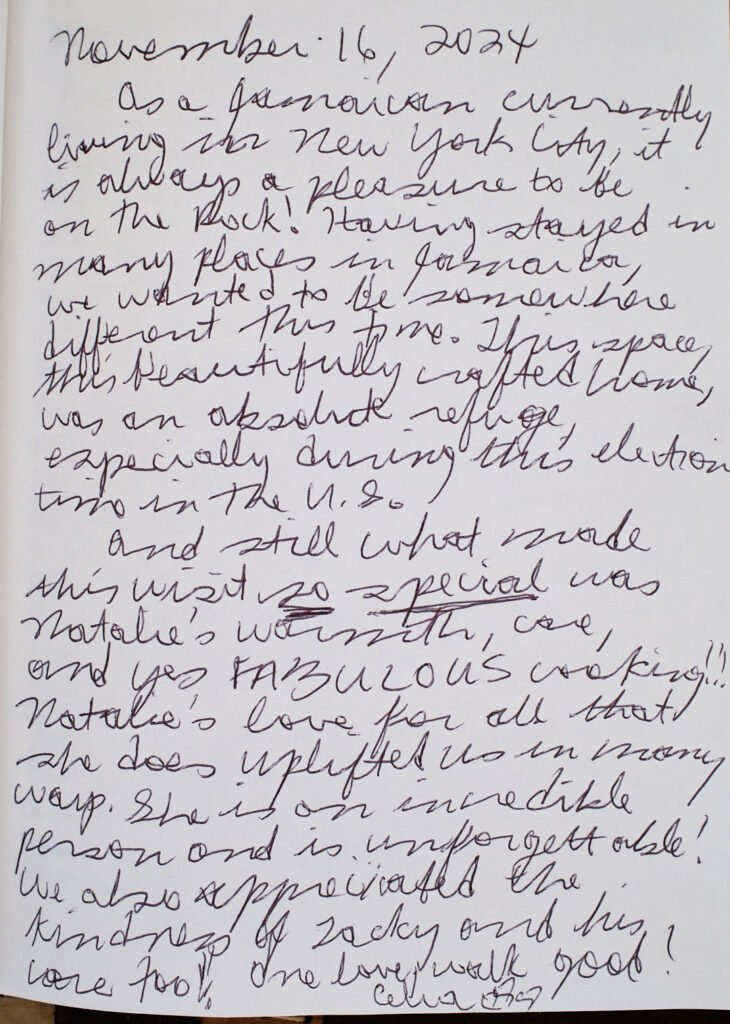 November 16, 2024
As a Jamaican currently
living in New York City, it
is always a pleasure to be
on the Rock! Having stayed in
many places in Jamaica,
we wanted to be somewhere
different this time. This space,
this beautifully crafted home,
was an absolute refuge,
especially during this election
time in the U.S.
And still what made
this visit so special was
Natalie's warmth, care,
and yes FABULOUS cooking!!!
Natalie's love for all that
she does uplifted us in many
ways. She is an incredible
person and is unforgettable!
We also appreciated the
kindness of Zacky and his
care too! One love, walk good!